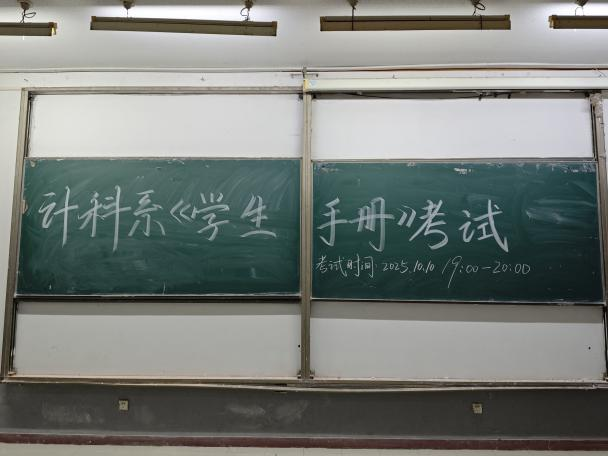 计科系《学生手册》考试
考试时间:2025.10.10 19:00-20:00